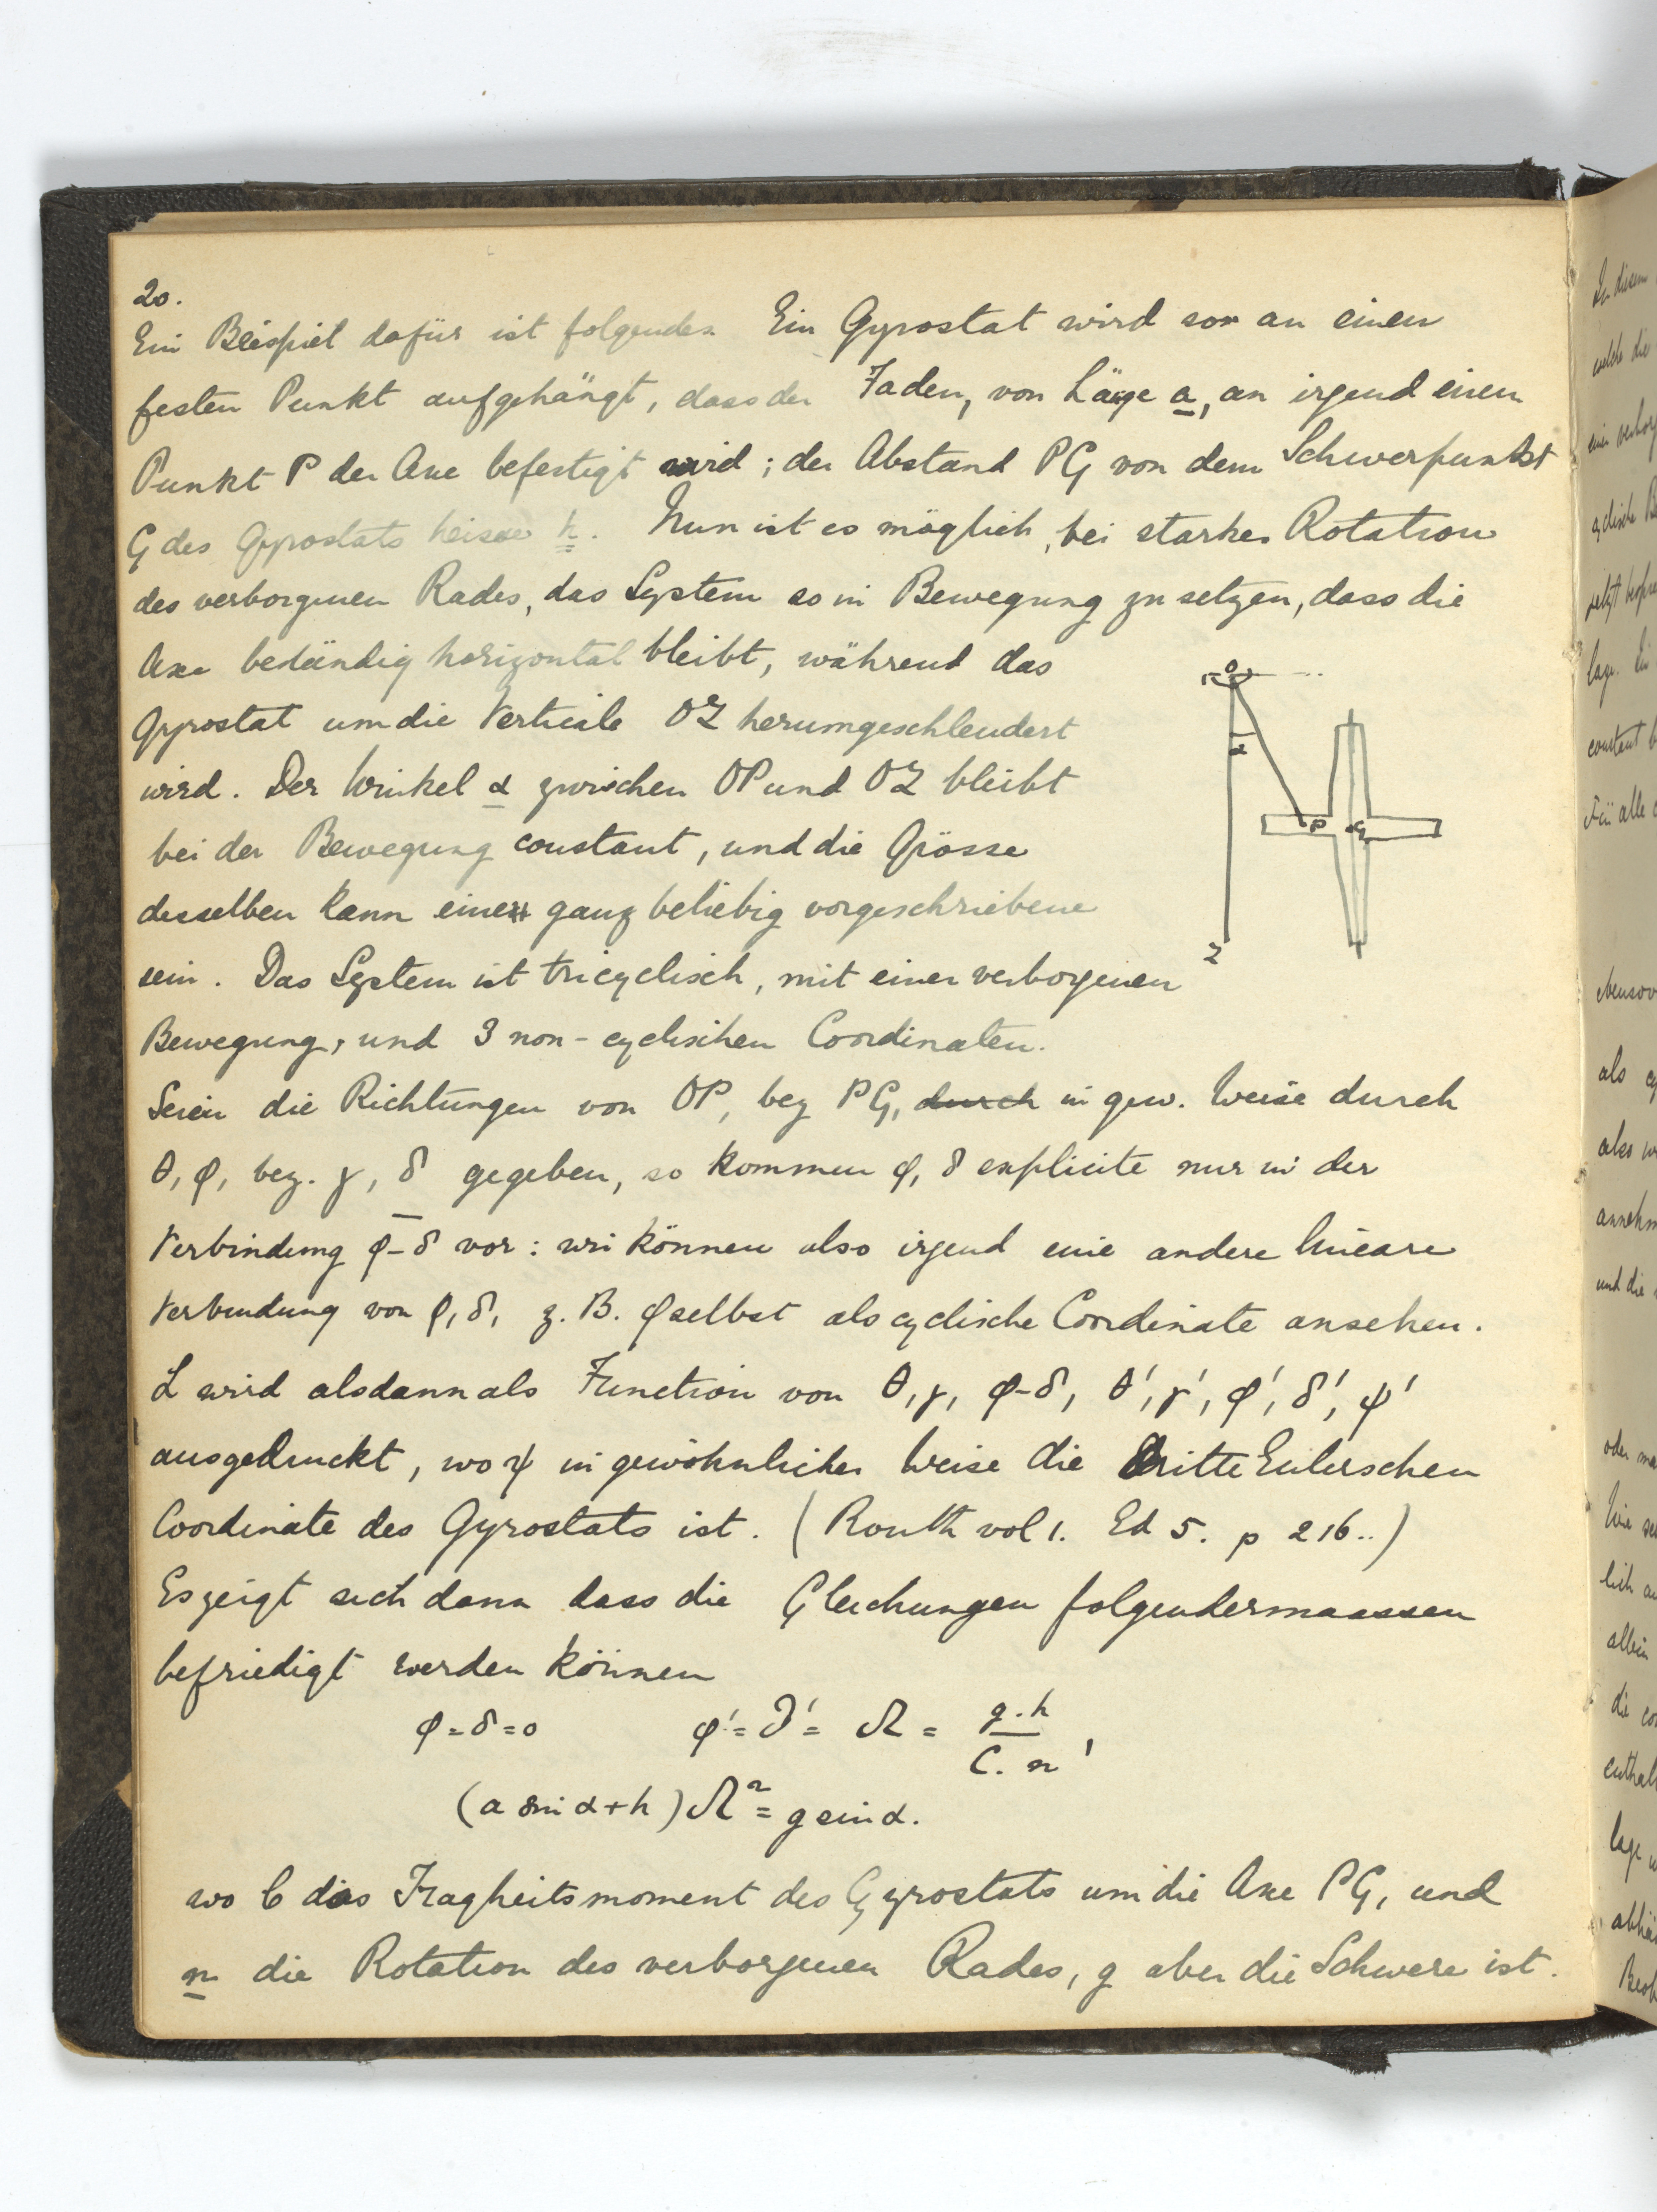 20.
Ein Beispiel dafür ist folgendes Ein Gyrostat wird so an einen
festen Punkt aufgehängt, dass der Faden, von Länge a, an irgend einem
Punkt P der Axe befestigt wird ; der Abstand PG von dem Schwerpunkt
G des Gyrostats heisse h. Nun ist es möglich, bei starker Rotation
des verborgenen Rades, das System so in Bewegung zu setzen, dass die
Axe beständig horizontal bleibt, während das
Gyrostat um die Verticale OZ herumgeschleudert
wird. Der Winkel α zwischen OP und OZ bleibt
bei der Bewegung constant, und die Grösse
desselben kann eine ganz beliebig vorgeschriebene
sein. Das System ist tricyclisch, mit einer verborgenen
Bewegung, und 3 non-cyclischen Coordinaten.
Seien die Richtungen von OP, bez PG, durch in gew. Weise durch
θ, φ, bez. γ, δ gegeben, so kommen φ, δ explicite nur in der
Verbindung φ-δ vor : wir können also irgend eine andere lineare
Verbindung von φ, δ, z. B. φ selbst als cyclische Coordinate ansehen.
L wird alsdann als Function von θ, γ, φ-δ, θ', γ', φ', δ', ψ'
ausgedruckt, wo ψ in gewöhnlicher Weise die dritte Eulerschen
Coordinate des Gyrostats ist. (Routh vol 1. Ed 5. p 216..)
Es zeigt sich dann dass die Gleichungen folgendermaassen
befriedigt werden können
φ = δ = 0 φ' = δ' = Ω = g.h / C.n ,
(a sin α + h) Ω² = g sin α.
wo C das Tragheitsmoment des Gyrostats um die Axe PG, und
n die Rotation des verborgenen Rades, g aber die Schwere ist.
O
α
P
G
Z